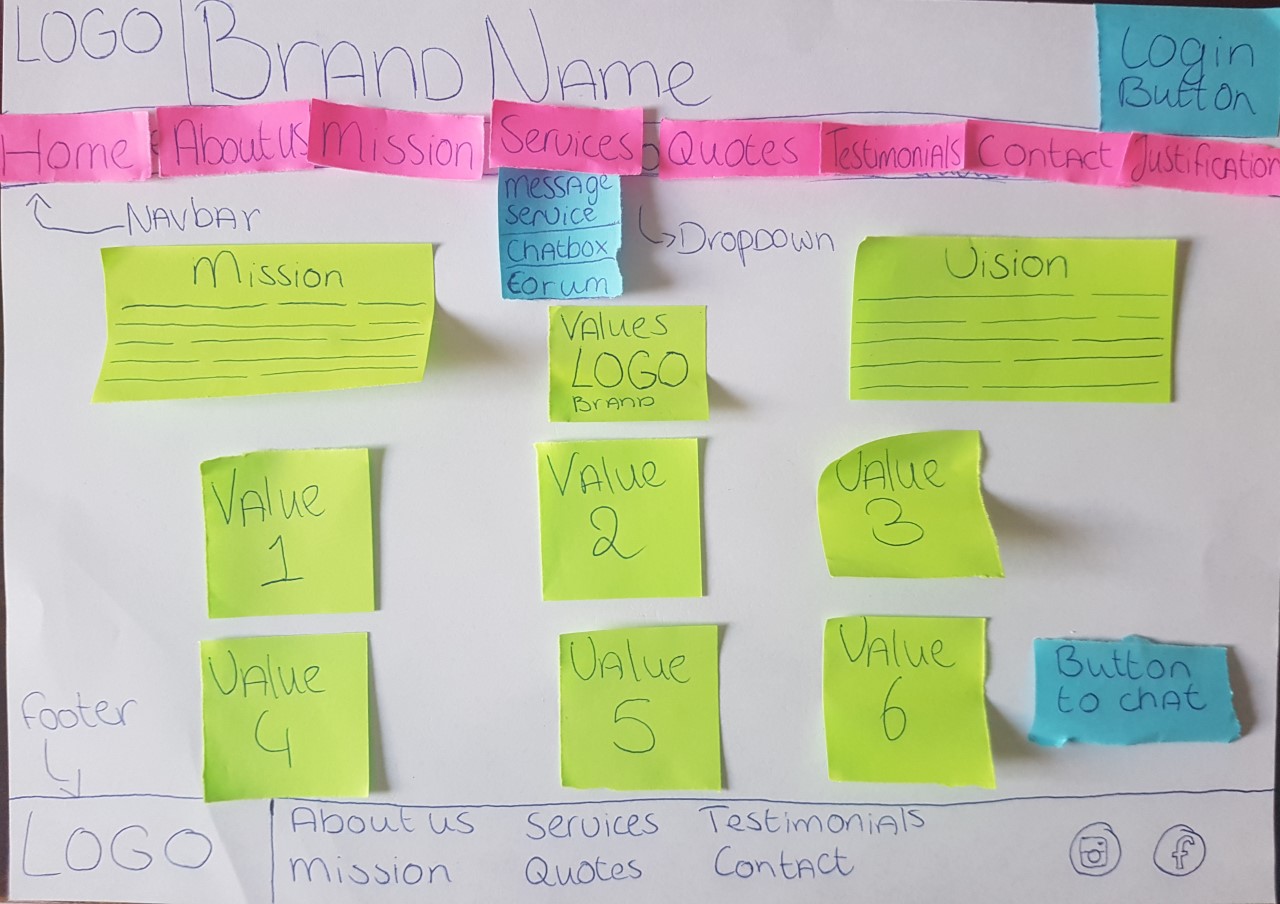 LOGO
Brand Name
Login
Button
Home
About us
Mission
Services
Quotes
Testimonials
Contact
Justification
Navbar
message
service
Chatbox
Forum
Dropdown
Mission
Vision
Values
LOGO
Brand
Value
1
Value
2
Value
3
Value
4
Value
5
Value
6
Button
to chat
footer
LOGO
About us Services Testimonials
Mission Quotes Contact
f